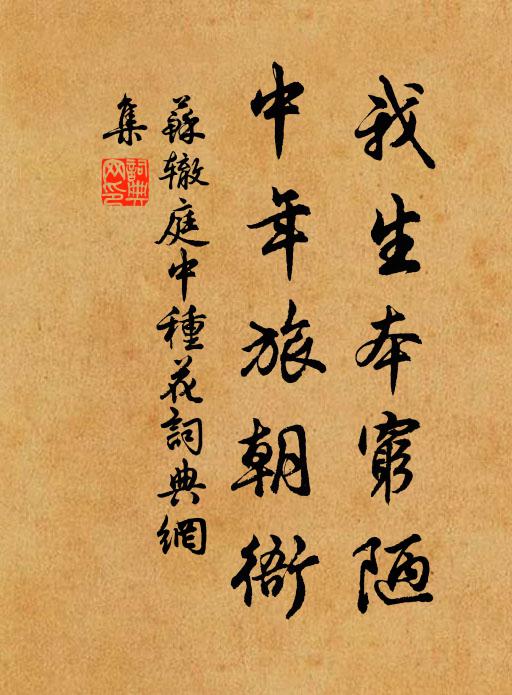 我生本窮陋
中年旅朝衙
蘇辙庭中種花詞典網
集
詞典
网印